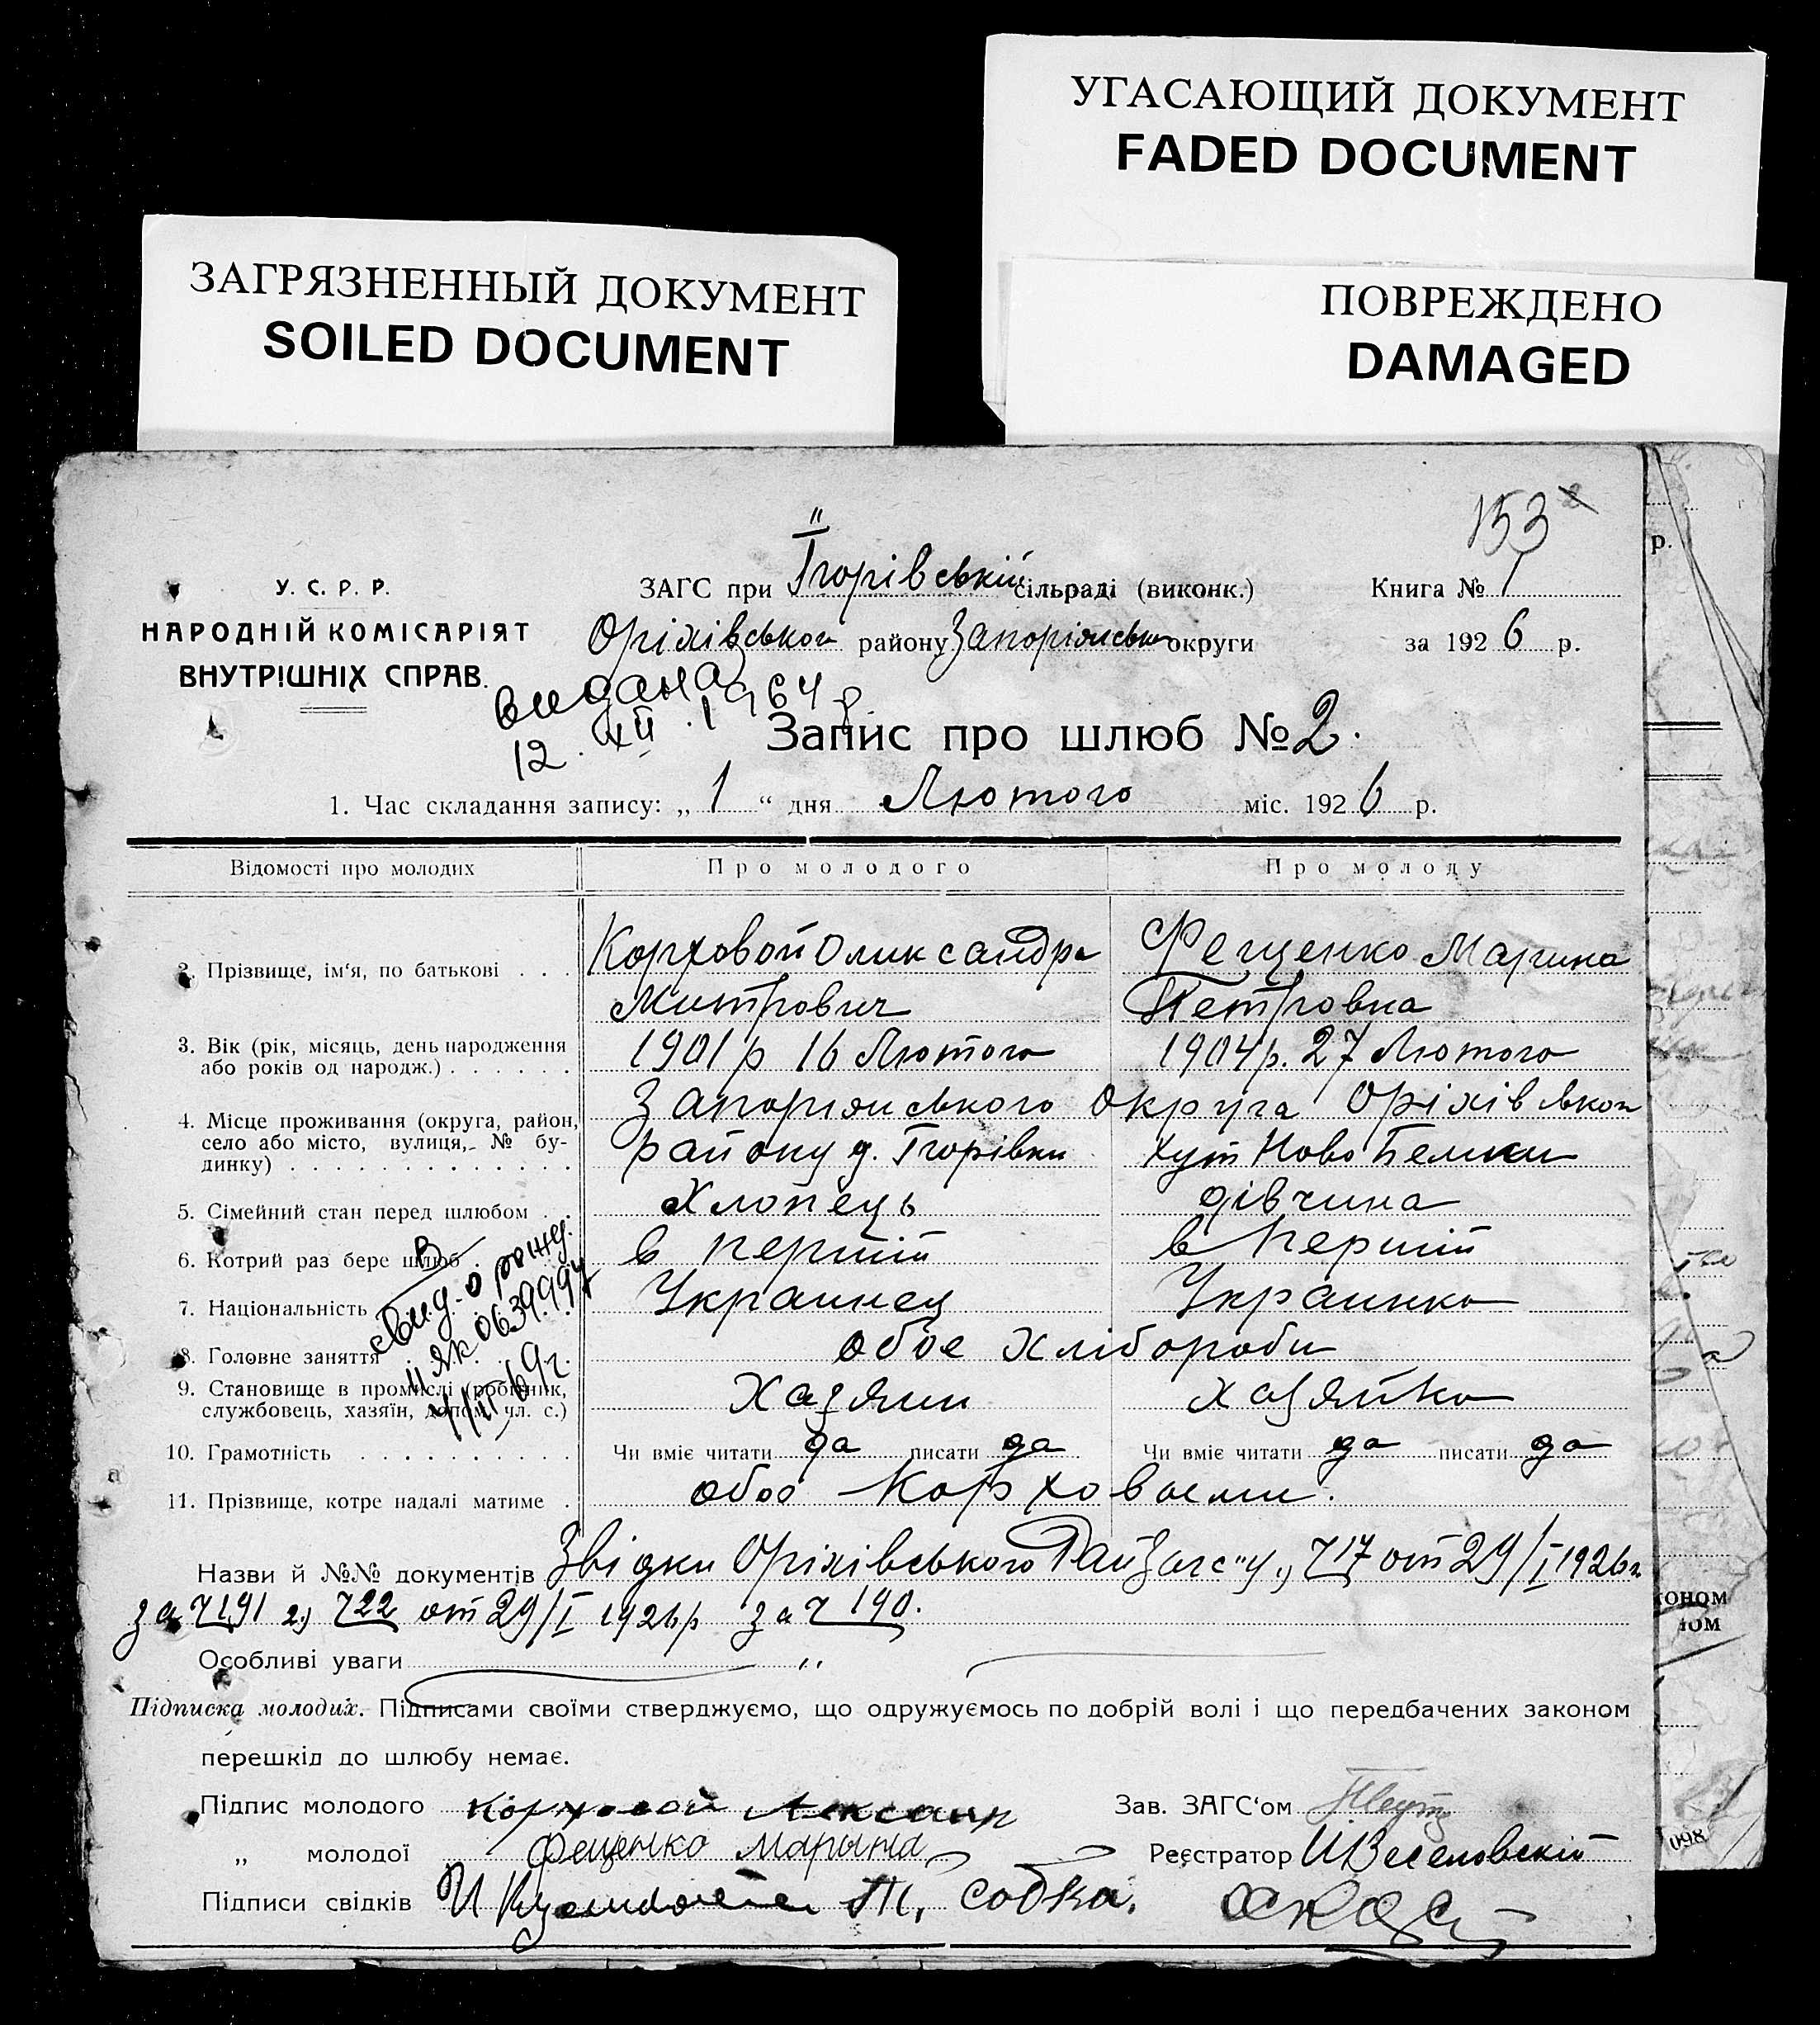 УГАСАЮЩИЙ ДОКУМЕНТ
FADED DOCUMENT
ЗАГРЯЗНЕННЫЙ ДОКУМЕНТ
SOILED DOCUMENT
ПОВРЕЖДЕНО
DAMAGED
153
У. С. Р. Р.
НАРОДНІЙ КОМІСАРІЯТ
ВНУТРІШНІХ СПРАВ.
ЗАГС при Ігорівській сільраді (виконк.)
Книга № 1
Оріхівськои району Запоріжськ округи
за 1926 р.
видана
12. XII. 1964 р.
Запис про шлюб № 2.
1. Час складання запису: „ 1 “ дня Лютого міс. 1926 р.
Відомості про молодих
Про молодого
Про молоду
2. Прізвище, ім‘я, по батькові . . .
Корховой Олександр
Митрович
Фещенко Марина
Петровна
3. Вік (рік, місяць, день народження
або років од народж.) . . . . . .
1901 р 16 Лютого
1904 р. 27 Лютого
4. Місце проживання (округа, район,
село або місто, вулиця, № бу-
динку) . . . . . . . . . . . . .
Запоріжського Округа Оріхівськои
району д. Ігорівки
хут Ново
5. Сімейний стан перед шлюбом . .
Хлопець
дівчина
6. Котрий раз бере шлюб .
в перший
в перший
7. Національність
Украинец
Украинка
8. Головне заняття
обое хлібороби
9. Становище в промислі (робітник,
службовець, хазяїн, допом. чл. с.)
Хазяин
хазяйка
10. Грамотність . . . . . . . . . .
Чи вміє читати да писати да
Чи вміє читати да писати да
11. Прізвище, котре надалі матиме .
обое Корховыми.
В
свид-о рожд.
II ЯК 0639997
69 г.
Назви й №№ документів Звідки Оріхівського РайЗагс"у 1, ч 17 от 29/I 1926 г
за ч 191 2, ч 22 от 29/I 1926 р за ч 190.
Особливі уваги
Підписка молодих. Підписами своїми стверджуємо, що одружуємось по добрій волі і що передбачених законом
перешкід до шлюбу немає.
Підпис молодого Корховой
Зав. ЗАГС‘ом
„ молодої Фещенко Марына
Реєстратор И Веселовский
Підписи свідків
Т. Собка.
р.
КОНОМ
ІОМ
098